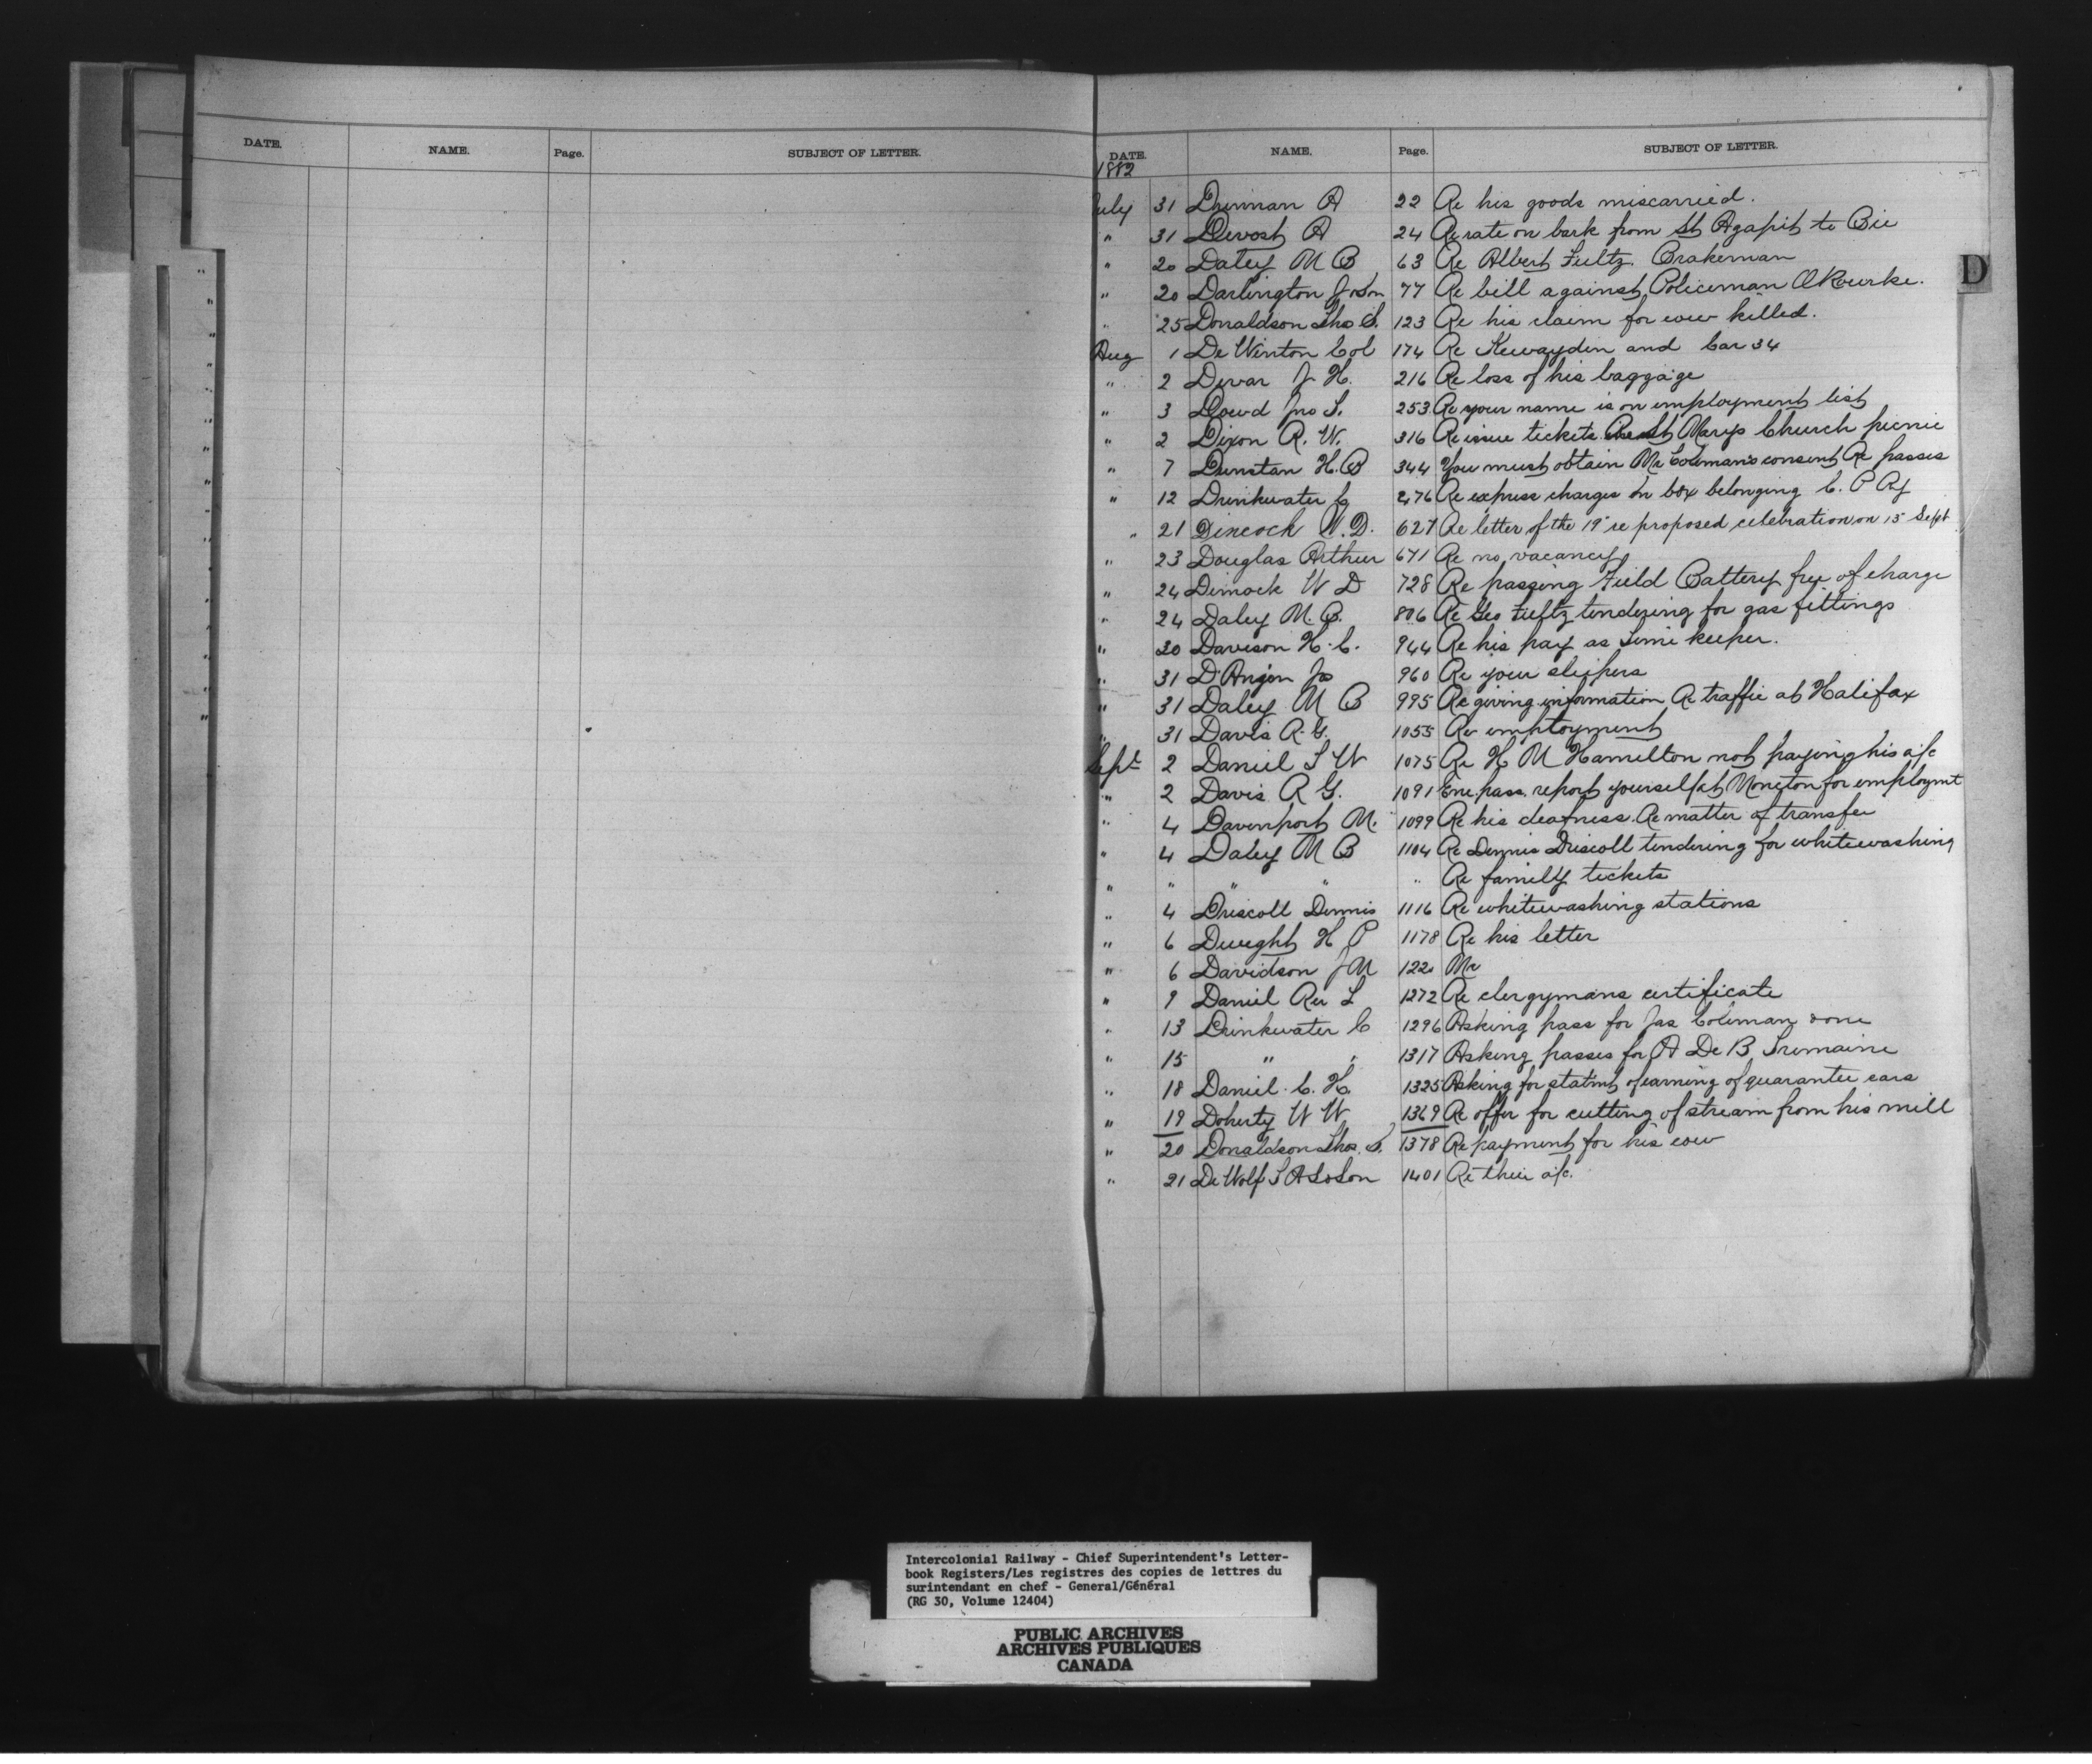 DATE. NAME. Page. SUBJECT OF LETTER.
DATE. NAME. Page. SUBJECT OF LETTER.
1882
D
July 31 A 22 Re his goods miscarried.
" 31 Devost A 24 Re rate on bark from St Agapit to Bic
" 20 Daley M B 63 Re Albert Fultz. Brakeman
" 20 Darlington 77 Re bill against Policeman O'Rourke.
" 25 Donaldson Thos S. 123 Re his claim for cow killed.
Aug 1 De Winton Col 174 Re Kewaydin and Car 34
" 2 Dewar J H. 216 Re loss of his baggage
" 3 Dowd Jno S. 253 Re your name is on employment list
" 2 Dixon R. W. 316 Re issue tickets St Marys Church picnic
" 7 Dunstan H. B 344 You must obtain Mr Colemans consent Re passes
" 12 Drinkwater 476 Re express charges on box belonging C. P Ry
" 21 W. D. 627 Re letter of the 19" re proposed celebration on 15 Sept
" 23 Douglas Arthur 671 Re no vacancy
" 24 Dimock W D 728 Re passing Field Battery free of charge
" 24 Daley M. B. 806 Re Geo Fultz tendering for gas fittings
" 30 Davison H. C. 944 Re his pay as time keeper.
" 31 D'Anjou Jos 960 Re your sleepers
" 31 Daley M B 995 Re giving information Re traffic at Halifax
" 31 Davis R. G. 1055 Re employment
Sept 2 Daniel T W 1075 Re H M Hamilton not paying his a/c
" 2 Davis R G. 1091 Enc. pass. report yourself at Moncton for employmt
" 4 Davenport M. 1099 Re his deafness. Re matter of transfer
" 4 Daley M B 1104 Re Dennis Driscoll tendering for whitewashing
" " " " " Re family tickets
" 4 Driscoll Dennis 1116 Re whitewashing stations
" 6 Dwight H P 1178 Re his letter
" 6 Davidson J M 122
" 9 Daniel Rev L 1272 Re clergymans certificate
" 13 Drinkwater C 1296 Asking pass for Jas Coleman sons
" 15 " " 1317 Asking passes for A De B Tremaine
" 18 Daniel C. H. 1325 Asking for statmt of earning of guarantee cars
" 19 Doherty W W 1369 Re offer for cutting of stream from his mill
" 20 Donaldson Thos. S. 1378 Re payment for his cow
" 21 De Wolf & Son 1401 Re their a/c.
Intercolonial Railway - Chief Superintendent's Letter-
book Registers/Les registres des copies de lettres du
surintendant en chef - General/Général
(RG 30, Volume 12404)
PUBLIC ARCHIVES
ARCHIVES PUBLIQUES
CANADA